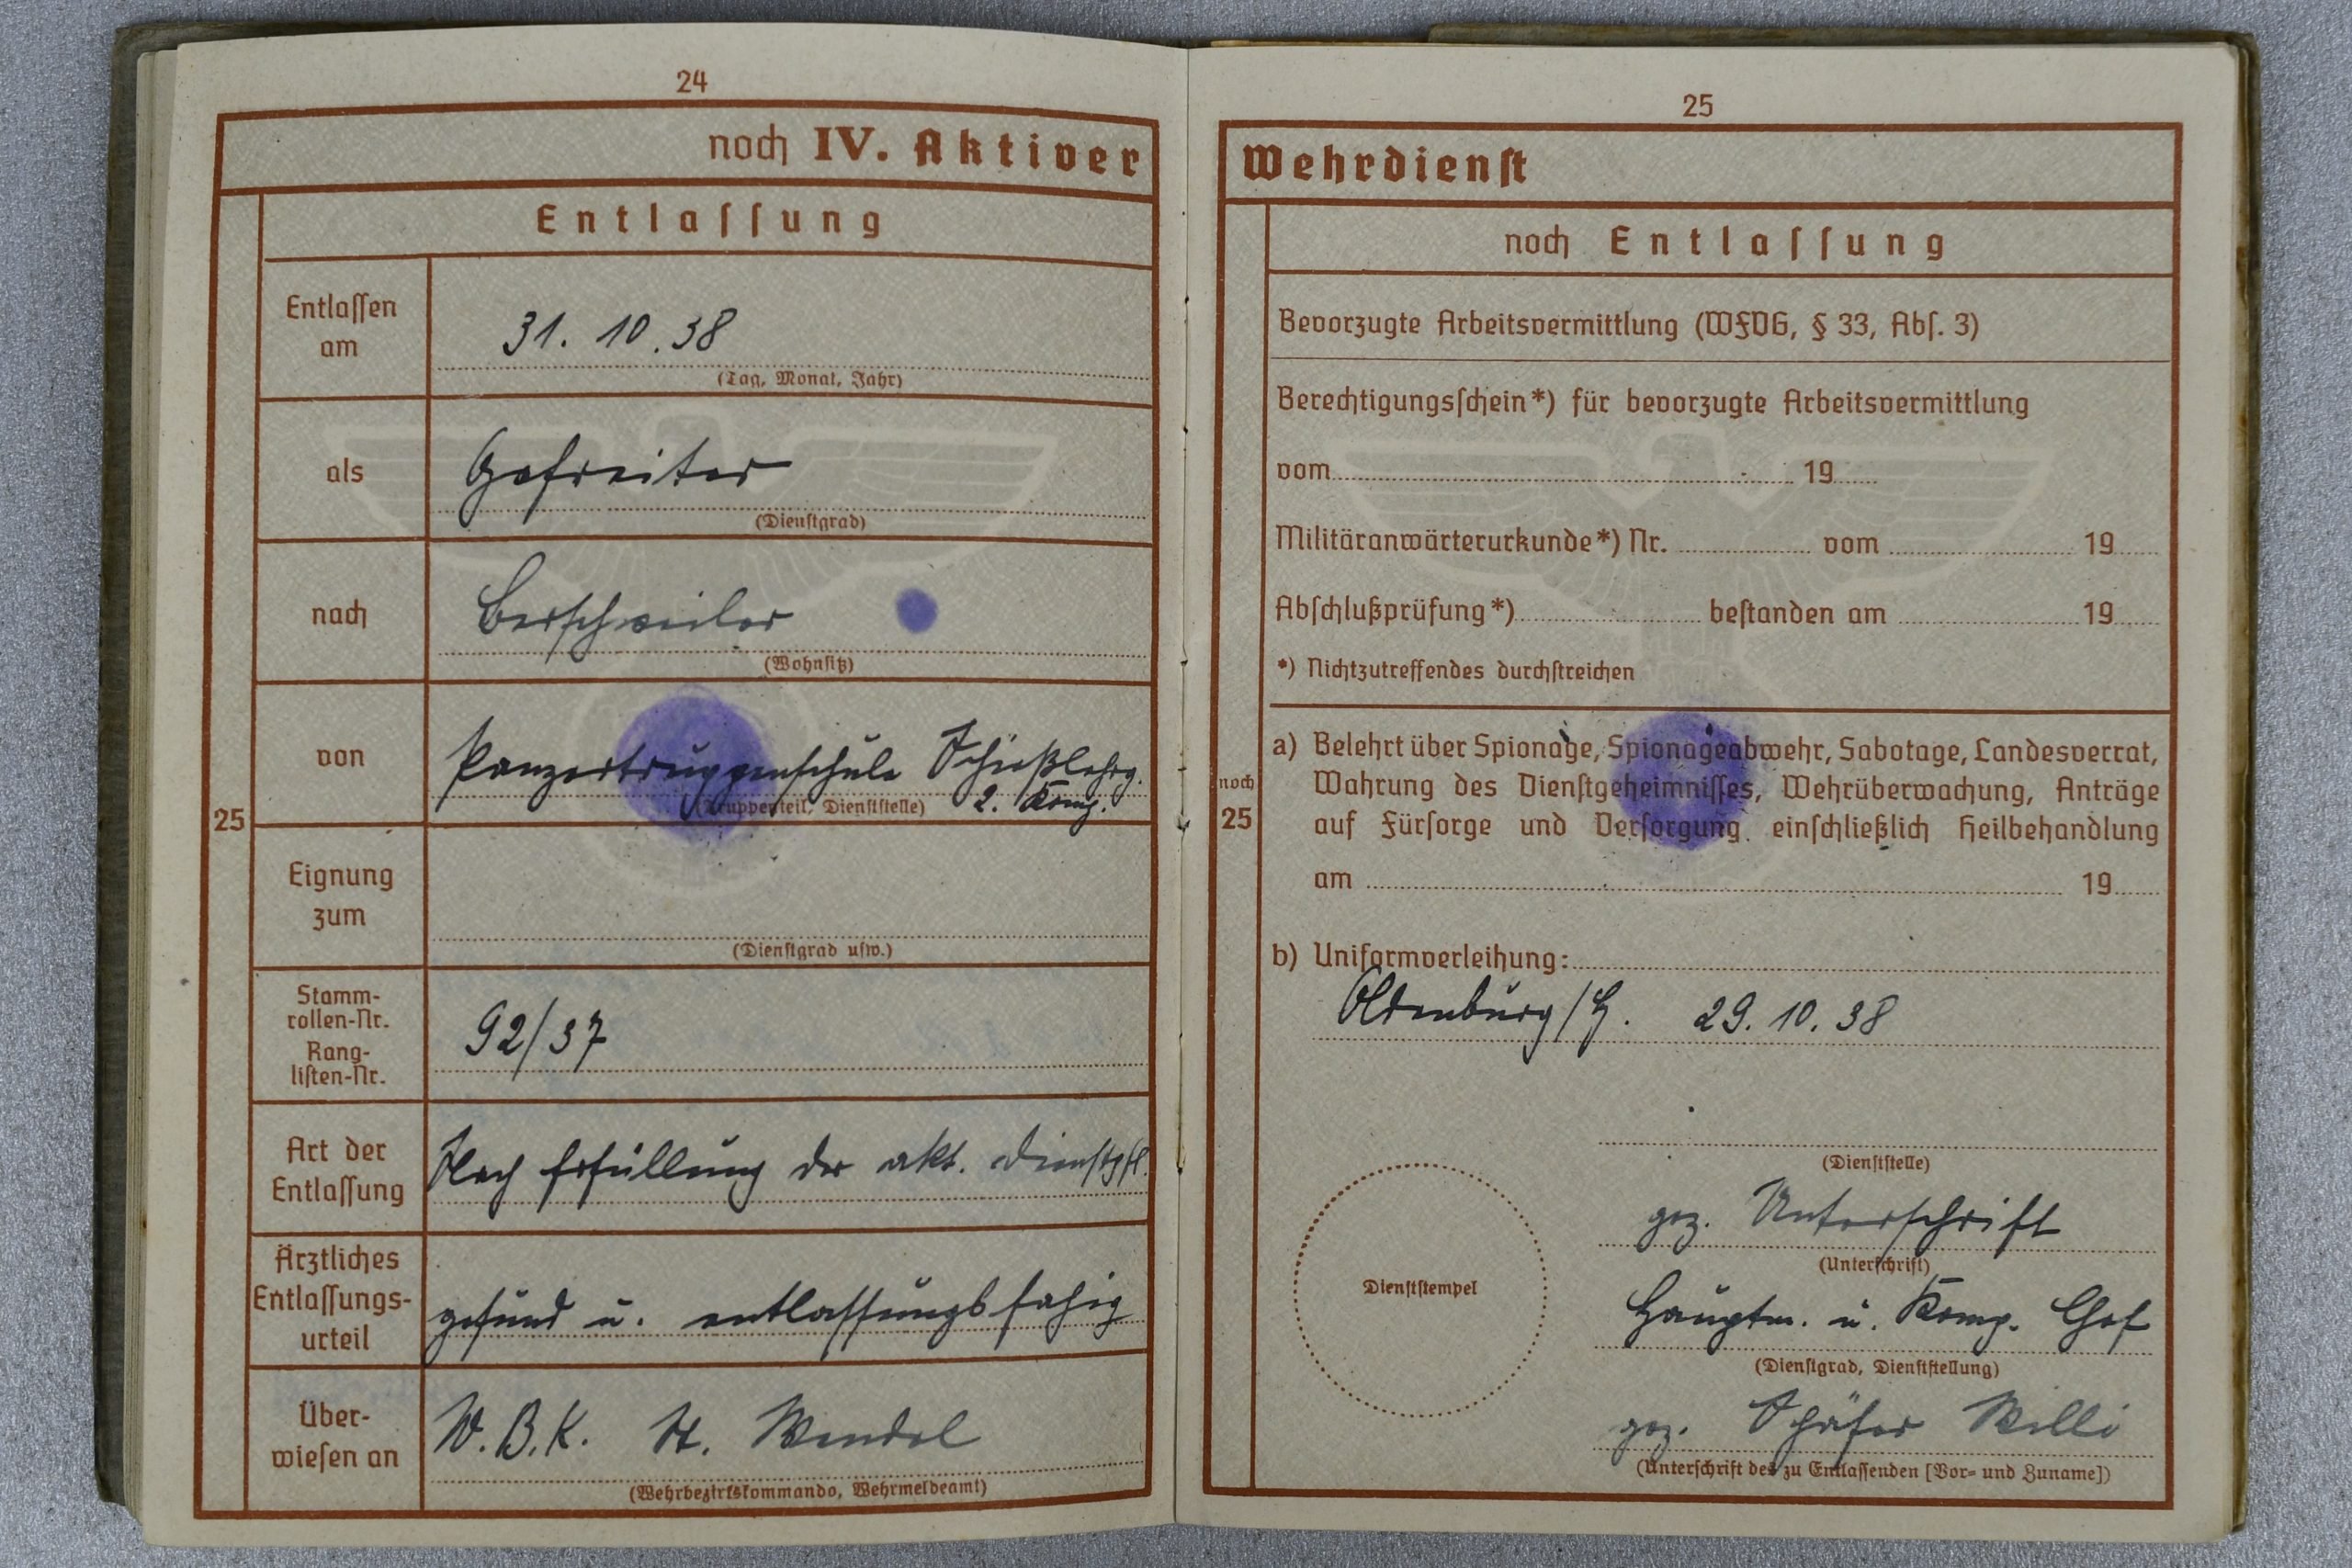 24
noch IV. Aktiver
Entlaſſung
Entlaſſen am
31. 10. 38
(Tag, Monat, Jahr)
als
Gefreiter
(Dienſtgrad)
nach
Berschweiler
(Wohnſitz)
von
Panzertruppenschule Schießlehrg.
(Truppenteil, Dienſtſtelle) 2. Komp.
25
Eignung zum
(Dienſtgrad uſw.)
Stamm-
rollen-Nr.
Rang-
liſten-Nr.
92/37
Art der Entlaſſung
Nach Erfüllung der akt. Dienstpfl.
Ärztliches
Entlaſſungs-
urteil
gesund u. entlassungsfähig
Über-
wieſen an
W.B.K. St. Wendel
(Wehrbezirkskommando, Wehrmeldeamt)
25
Wehrdienſt
noch Entlaſſung
Bevorzugte Arbeitsvermittlung (WFVG, § 33, Abſ. 3)
Berechtigungsſchein*) für bevorzugte Arbeitsvermittlung
vom 19
Militäranwärterurkunde*) Nr. vom 19
Abſchlußprüfung*) beſtanden am 19
*) Nichtzutreffendes durchſtreichen
noch
25
a) Belehrt über Spionage, Spionageabwehr, Sabotage, Landesverrat,
Wahrung des Dienſtgeheimniſſes, Wehrüberwachung, Anträge
auf Fürſorge und Verſorgung einſchließlich Heilbehandlung
am 19
b) Uniformverleihung:
Oldenburg/H. 29. 10. 38
(Dienſtſtelle)
gez. Unterschrift
(Unterſchrift)
Dienſtſtempel
Hauptm. u. Komp. Chef
(Dienſtgrad, Dienſtſtellung)
gez. Schäfer Willi
(Unterſchrift des zu Entlaſſenden [Vor- und Zuname])